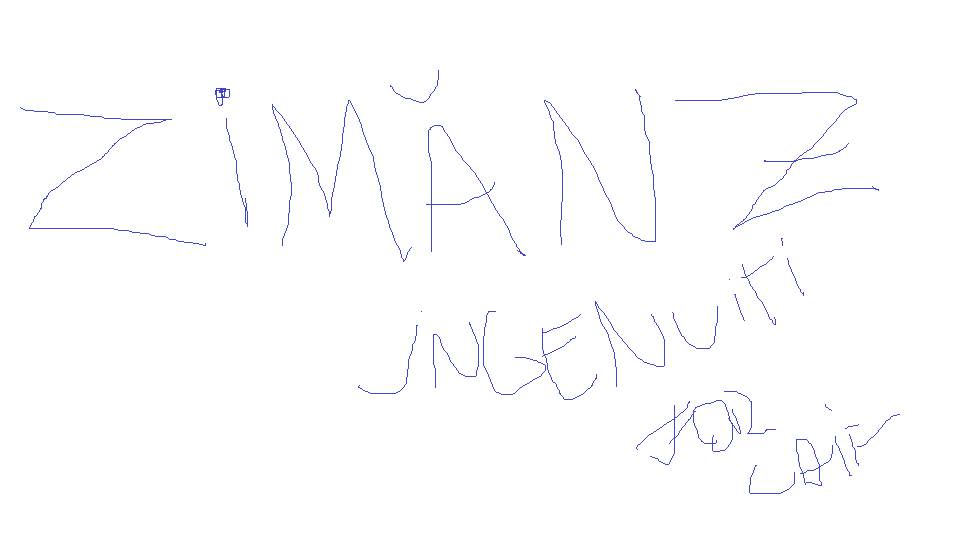 ZiMĂNƵ
jNGENUiTi
FOR
LAiF